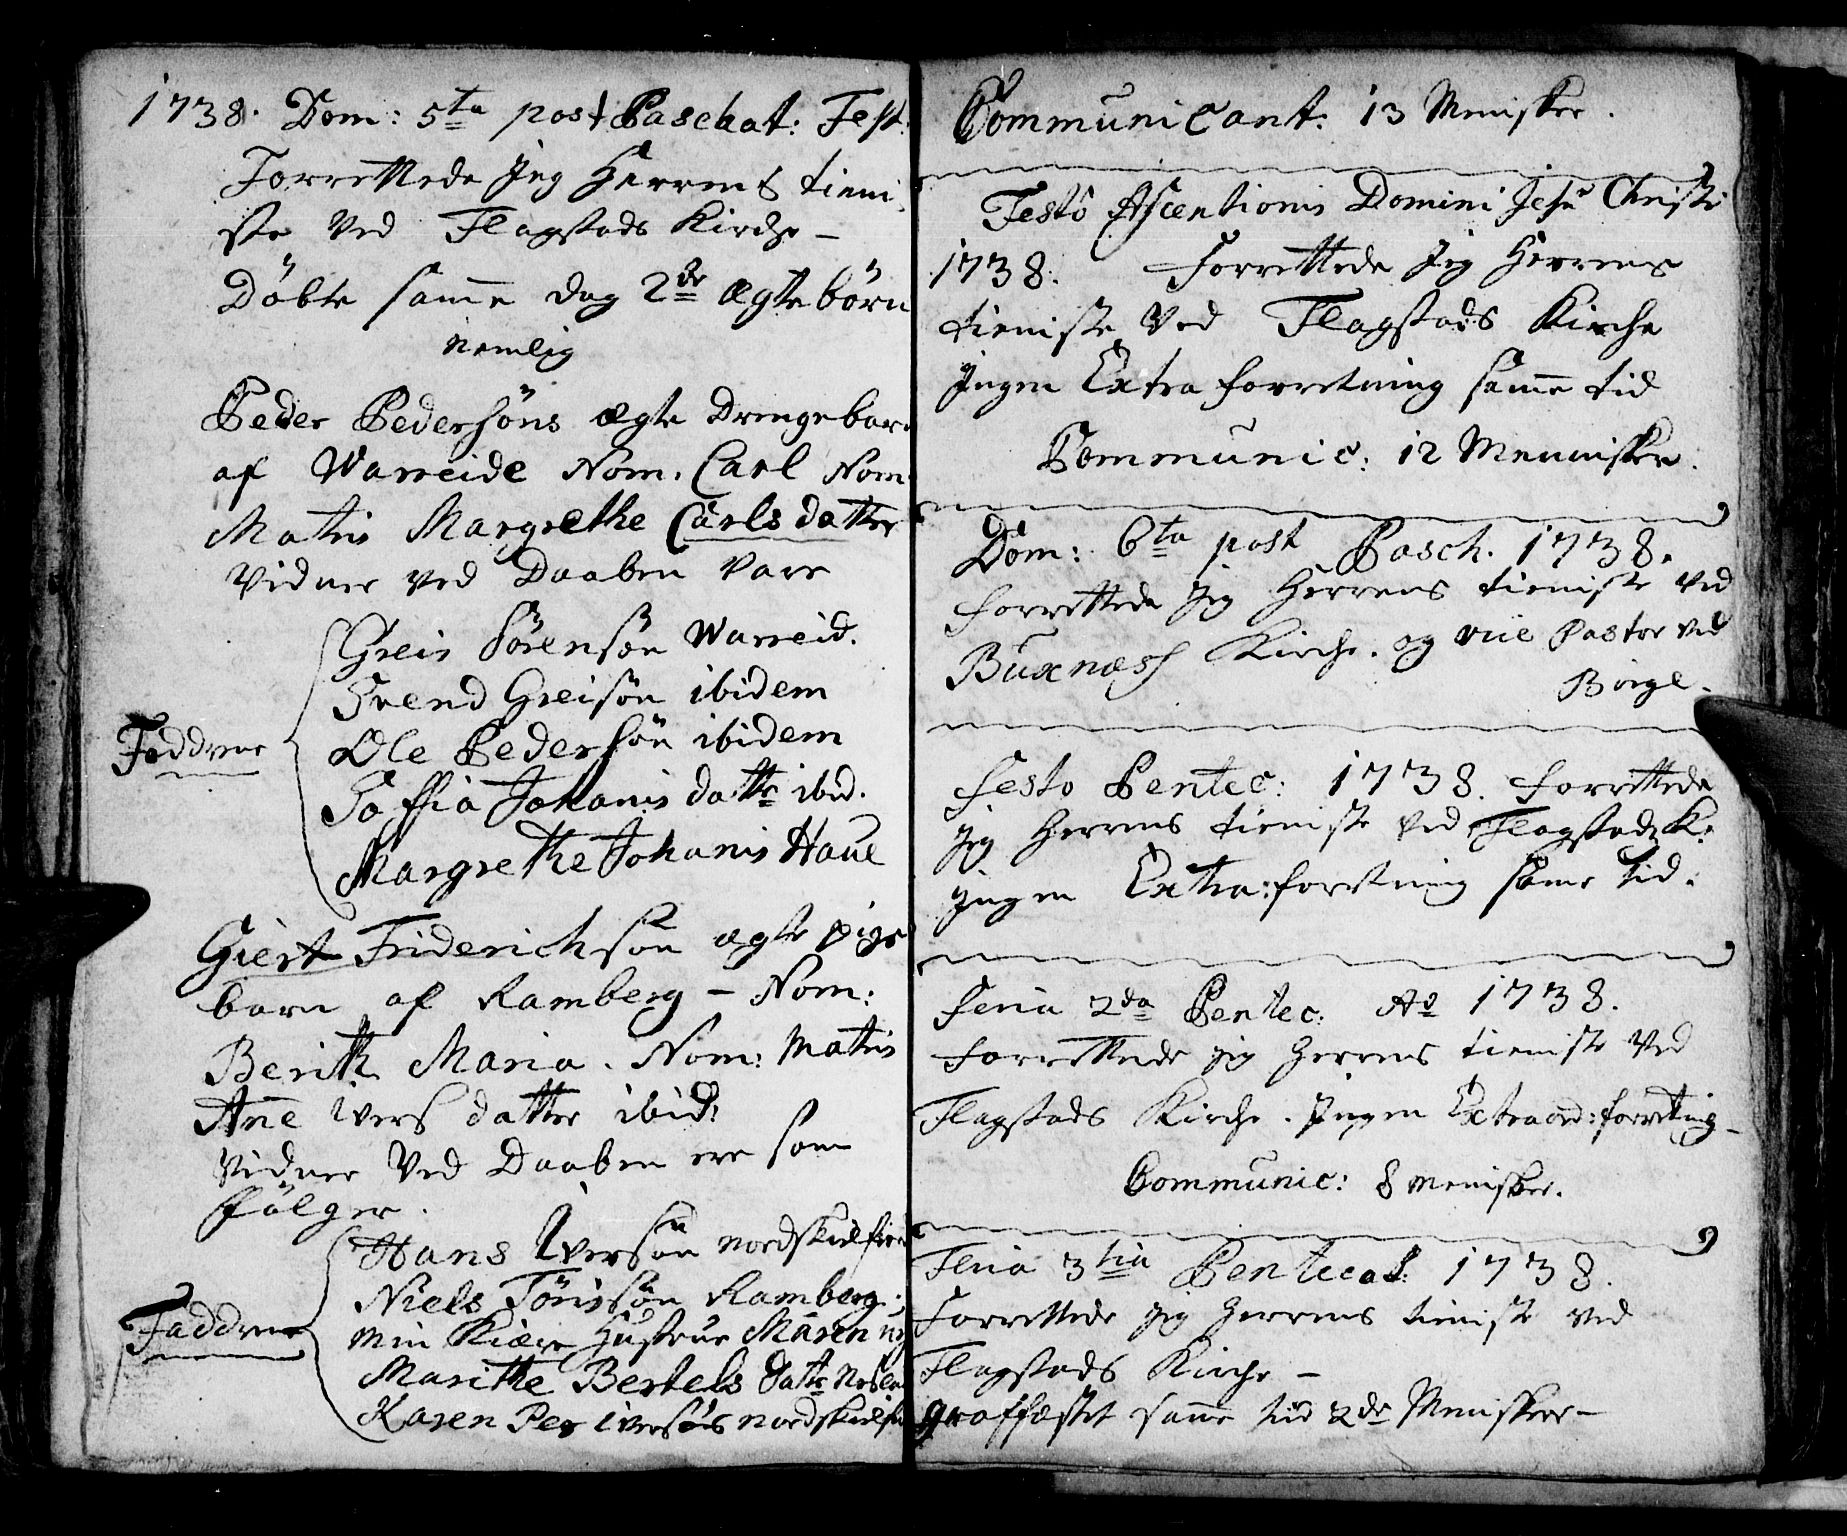 1738. Dom: 5ta post Paschat: Fest:
Forrettede Jeg Herrens tieni-
ste Ved Flagstads Kirche –
Döbte samme dag 2de ægte börn
nemlig
Peder Pedersöns ægte Drengebarn
af Warreide Nom. Carl Nom:
Matris Margrethe Carls datter
Vidner ved Daaben vare
Greis Sörensön Warreid.
Svend Greisön ibidem
Faddere
Ole Pedersön ibidem
Soffia Johanis dattr ibid.
Margrethe Johanis Haue
Giert Friderichsön ægte pige
barn af Ramberg – Nom:
Berith Maria. Nom: Matris
Añe Ivers datter ibid:
Vidner Ved Daaben ere som
fölger.
Hans Iversön Nordskielfiord
Niels Tönissön Ramberg:
Faddere
min Kiære Hustrue Maren
Marithe Bertels dattr
Karen Per iversöns nordskielfi
Communicant: 13 Menisker.
Festo Ascentionis Domini Jesu Christi
1738. Forrettede Jeg Herrens
tieniste Ved Flagstads Kirche
Ingen Extra forretning sam̄e tid
Communic: 12 Mennisker.
Dom: 6ta post Pasch. 1738.
forrettede Jeg Herrens tieniste ved
Buxnæss Kirche. og vice Pastor ved
Borge.
Festo Pentec: 1738. forrettede
Jeg Herrens tieniste ved Flagstads K:
Ingen Extra:forretning sam̄e tid.
Feria 2da Pentec: Ao 1738.
forrettede jeg Herrens tieniste Ved
Flagstads Kirche. Ingen Extraord: forretning –
Communic: 8 menisker.
Feria 3tia Pentecost: 1738.
Forrettede jeg Herrens tieniste ved
Flagstads Kirche –
graffæstet sam̄e tid 2de Menisker –